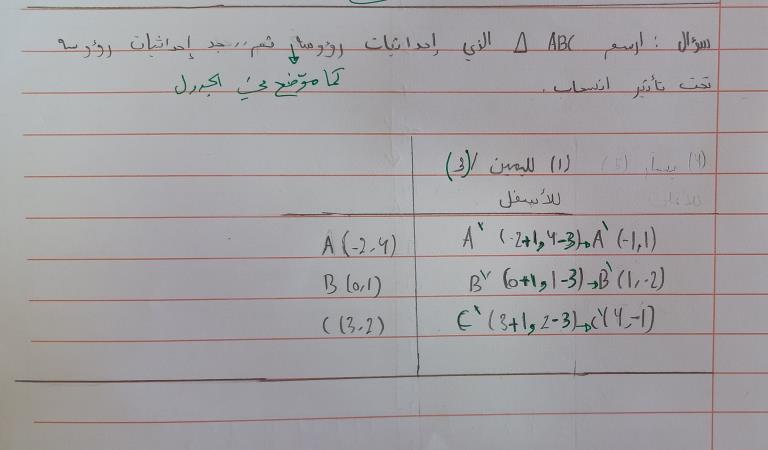 سؤال : ارسم ABC Δ الذي إحداثيات رؤوسه ثم .. جد إحداثيات رؤوسه
كما موضح في الجدول
تحت تأثير انسحاب .
(1) لليمين / (3)
للأسفل
A (-2,4) A` (-2+1, 4-3)→A` (-1,1)
B (0,1) B` (0+1, 1-3)→B` (1,-2)
C (3,2) C` (3+1, 2-3)→C` (4,-1)